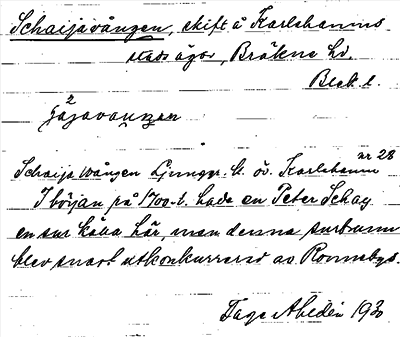 Schaijavången, skift å Karlshamns
stads ägor, Bräkne hd.
Blek. l.
Schaija vången Ljunggr. k. öv. Karlshamn nr 28
I början på 1700-t. hade en Peter Schay
en sur källa här, men denna surbrunn
blev snart utkonkurrerad av Ronnebys.
Tage Ahldén 1930